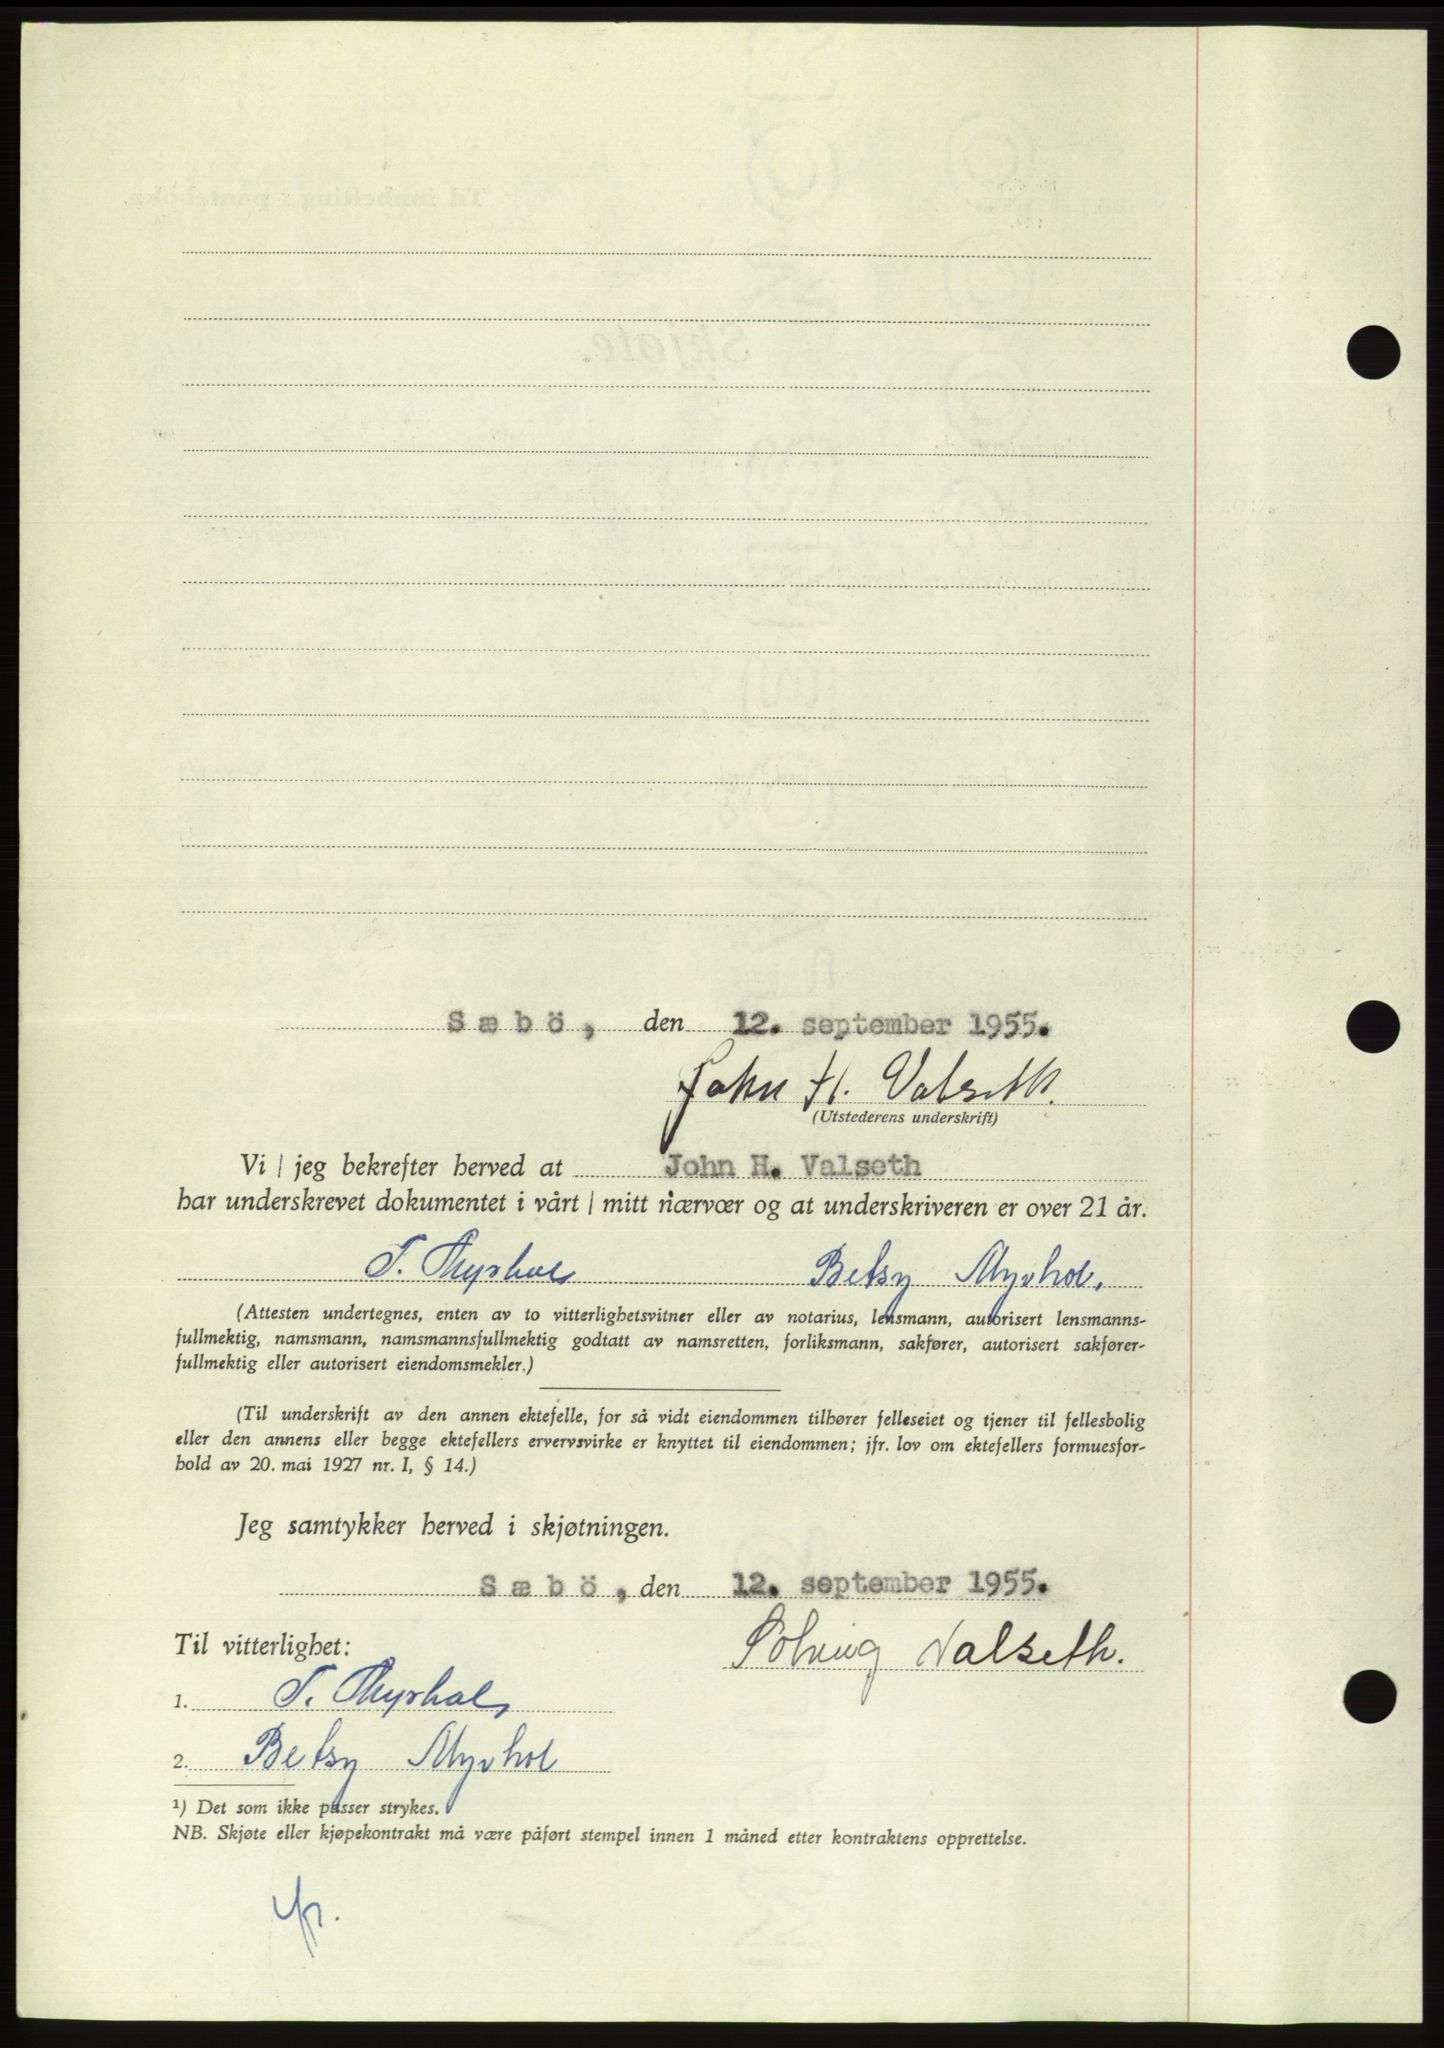 Sæbö, den 12. september 1955.
John H. Valseth.
(Utstederens underskrift)
Vi / jeg bekrefter herved at John H. Valseth
har underskrevet dokumentet i vårt / mitt nærvær og at underskriveren er over 21 år.
Betsy Myrhol.
(Attesten undertegnes, enten av to vitterlighetsvitner eller av notarius, lensmann, autorisert lensmanns-
fullmektig, namsmann, namsmannsfullmektig godtatt av namsretten, forliksmann, sakfører, autorisert sakfører-
fullmektig eller autorisert eiendomsmekler.)
(Til underskrift av den annen ektefelle, for så vidt eiendommen tilhører felleseiet og tjener til fellesbolig
eller den annens eller begge ektefellers ervervsvirke er knyttet til eiendommen; jfr. lov om ektefellers formuesfor-
hold av 20. mai 1927 nr. I, § 14.)
Jeg samtykker herved i skjøtningen.
Sæbö, den 12. september 1955.
Solveig Valseth.
Til vitterlighet:
1.
2. Betsy Myrhol
¹) Det som ikke passer strykes.
NB. Skjøte eller kjøpekontrakt må være påført stempel innen 1 måned etter kontraktens opprettelse.